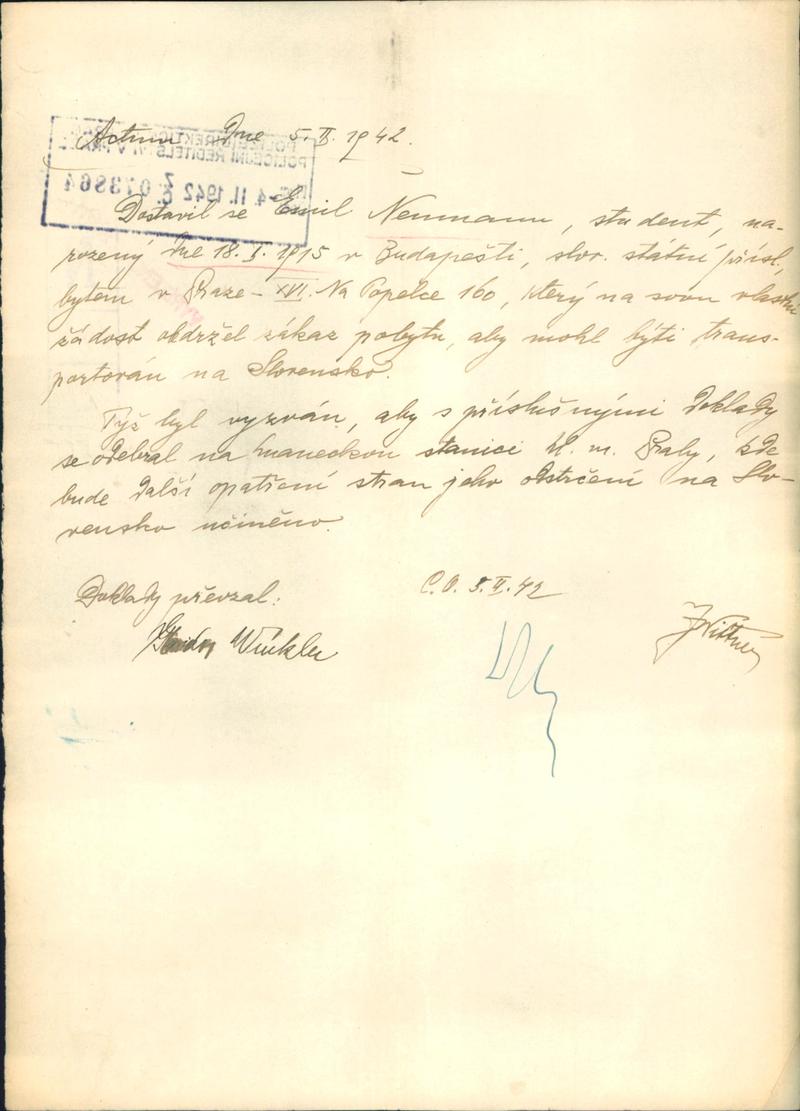 Actum Dne 5. II. 1942.
POLICEJNÍ ŘEDITELSTVÍ V PRAZE
4. II. 1942 073864
Dostavil se Emil Neumann, student, na-
rozený dne 18. I. 1915 v Budapešti, slov. státní přísl.,
bytem v Praze - XVI. Na Popelce 160, který na svou vlastní
žádost obdržel zákaz pobytu, aby mohl býti trans-
portován na Slovensko.
Týž byl vyzván, aby s příslušnými doklady
se odebral na hnaneckou stanici hl. m. Prahy, kde
bude další opatření stran jeho odstrčení na Slo-
vensko učiněno.
Doklady převzal:
C.O. 5. II. 42
Winkler